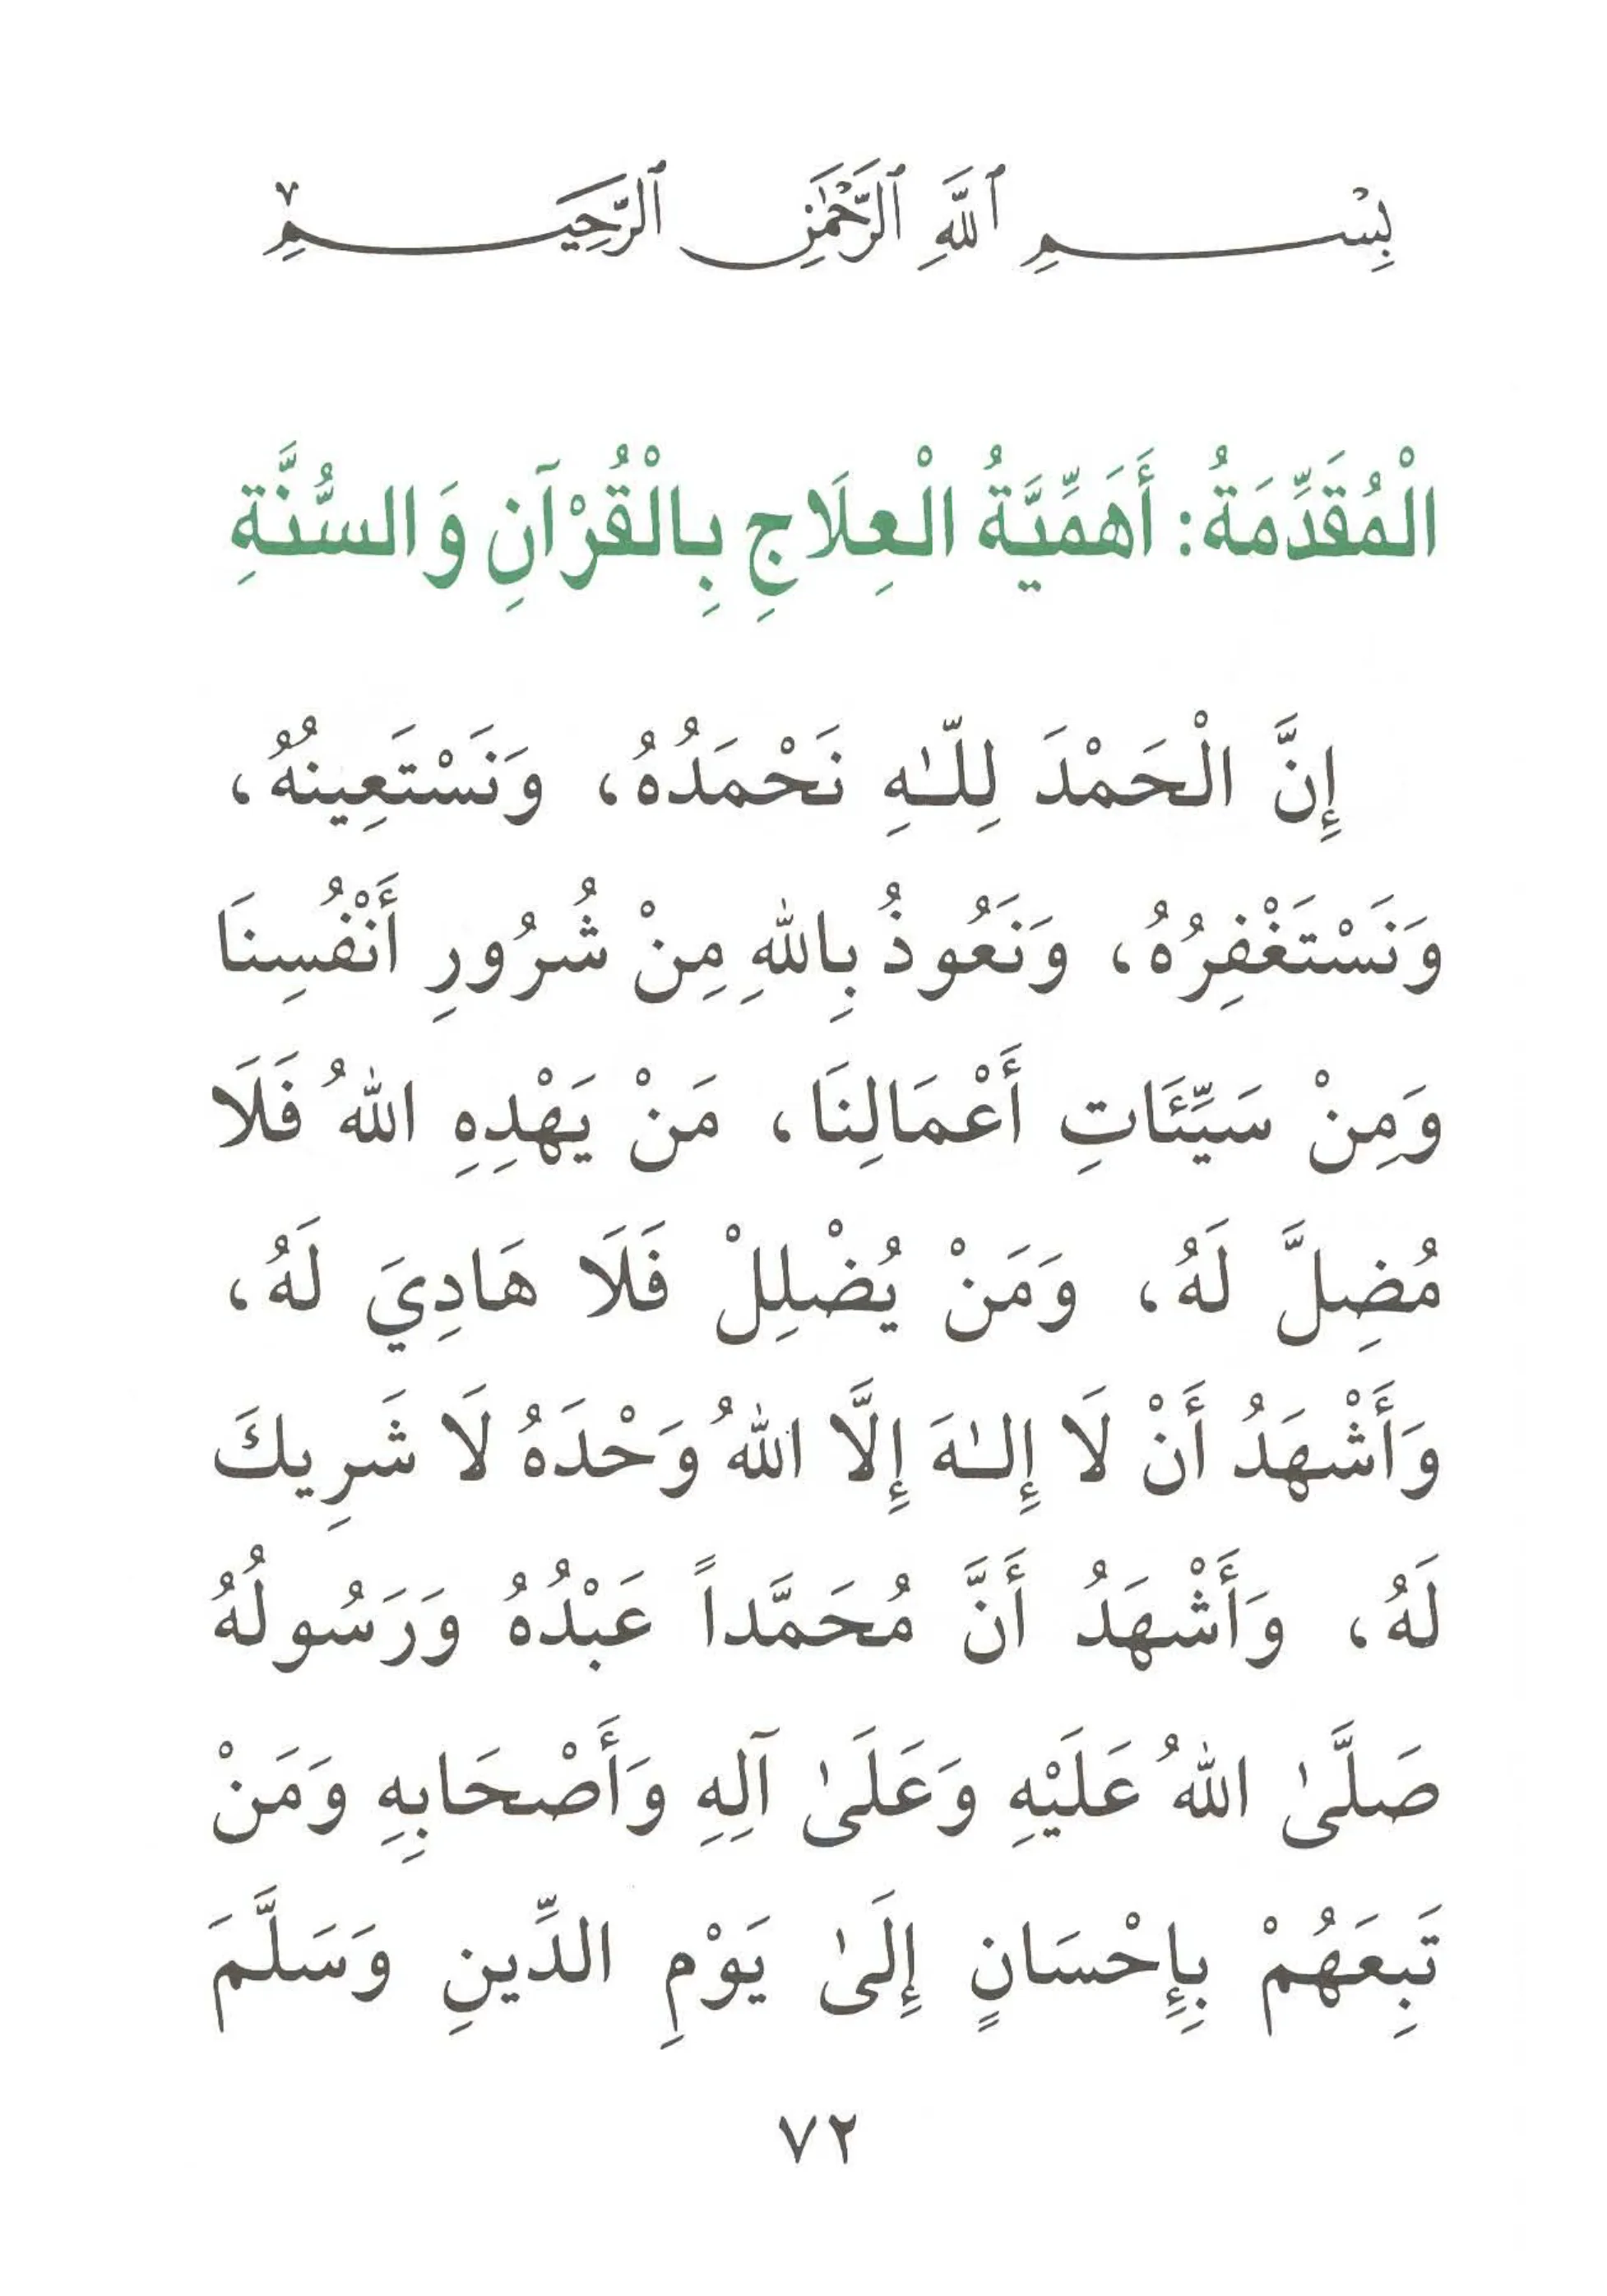 بِسْمِ ٱللَّهِ ٱلرَّحْمَٰنِ ٱلرَّحِيمِ
الْمُقَدِّمَةُ: أَهَمِّيَّةُ الْعِلَاجِ بِالْقُرْآنِ وَالسُّنَّةِ
إِنَّ الْحَمْدَ لِلّٰهِ نَحْمَدُهُ، وَنَسْتَعِينُهُ،
وَنَسْتَغْفِرُهُ، وَنَعُوذُ بِاللهِ مِنْ شُرُورِ أَنْفُسِنَا
وَمِنْ سَيِّئَاتِ أَعْمَالِنَا، مَنْ يَهْدِهِ اللهُ فَلَا
مُضِلَّ لَهُ، وَمَنْ يُضْلِلْ فَلَا هَادِيَ لَهُ،
وَأَشْهَدُ أَنْ لَا إِلـٰهَ إِلَّا اللهُ وَحْدَهُ لَا شَرِيكَ
لَهُ، وَأَشْهَدُ أَنَّ مُحَمَّداً عَبْدُهُ وَرَسُولُهُ
صَلَّىٰ اللهُ عَلَيْهِ وَعَلَىٰ آلِهِ وَأَصْحَابِهِ وَمَنْ
تَبِعَهُمْ بِإِحْسَانٍ إِلَىٰ يَوْمِ الدِّينِ وَسَلَّمَ
٧٢